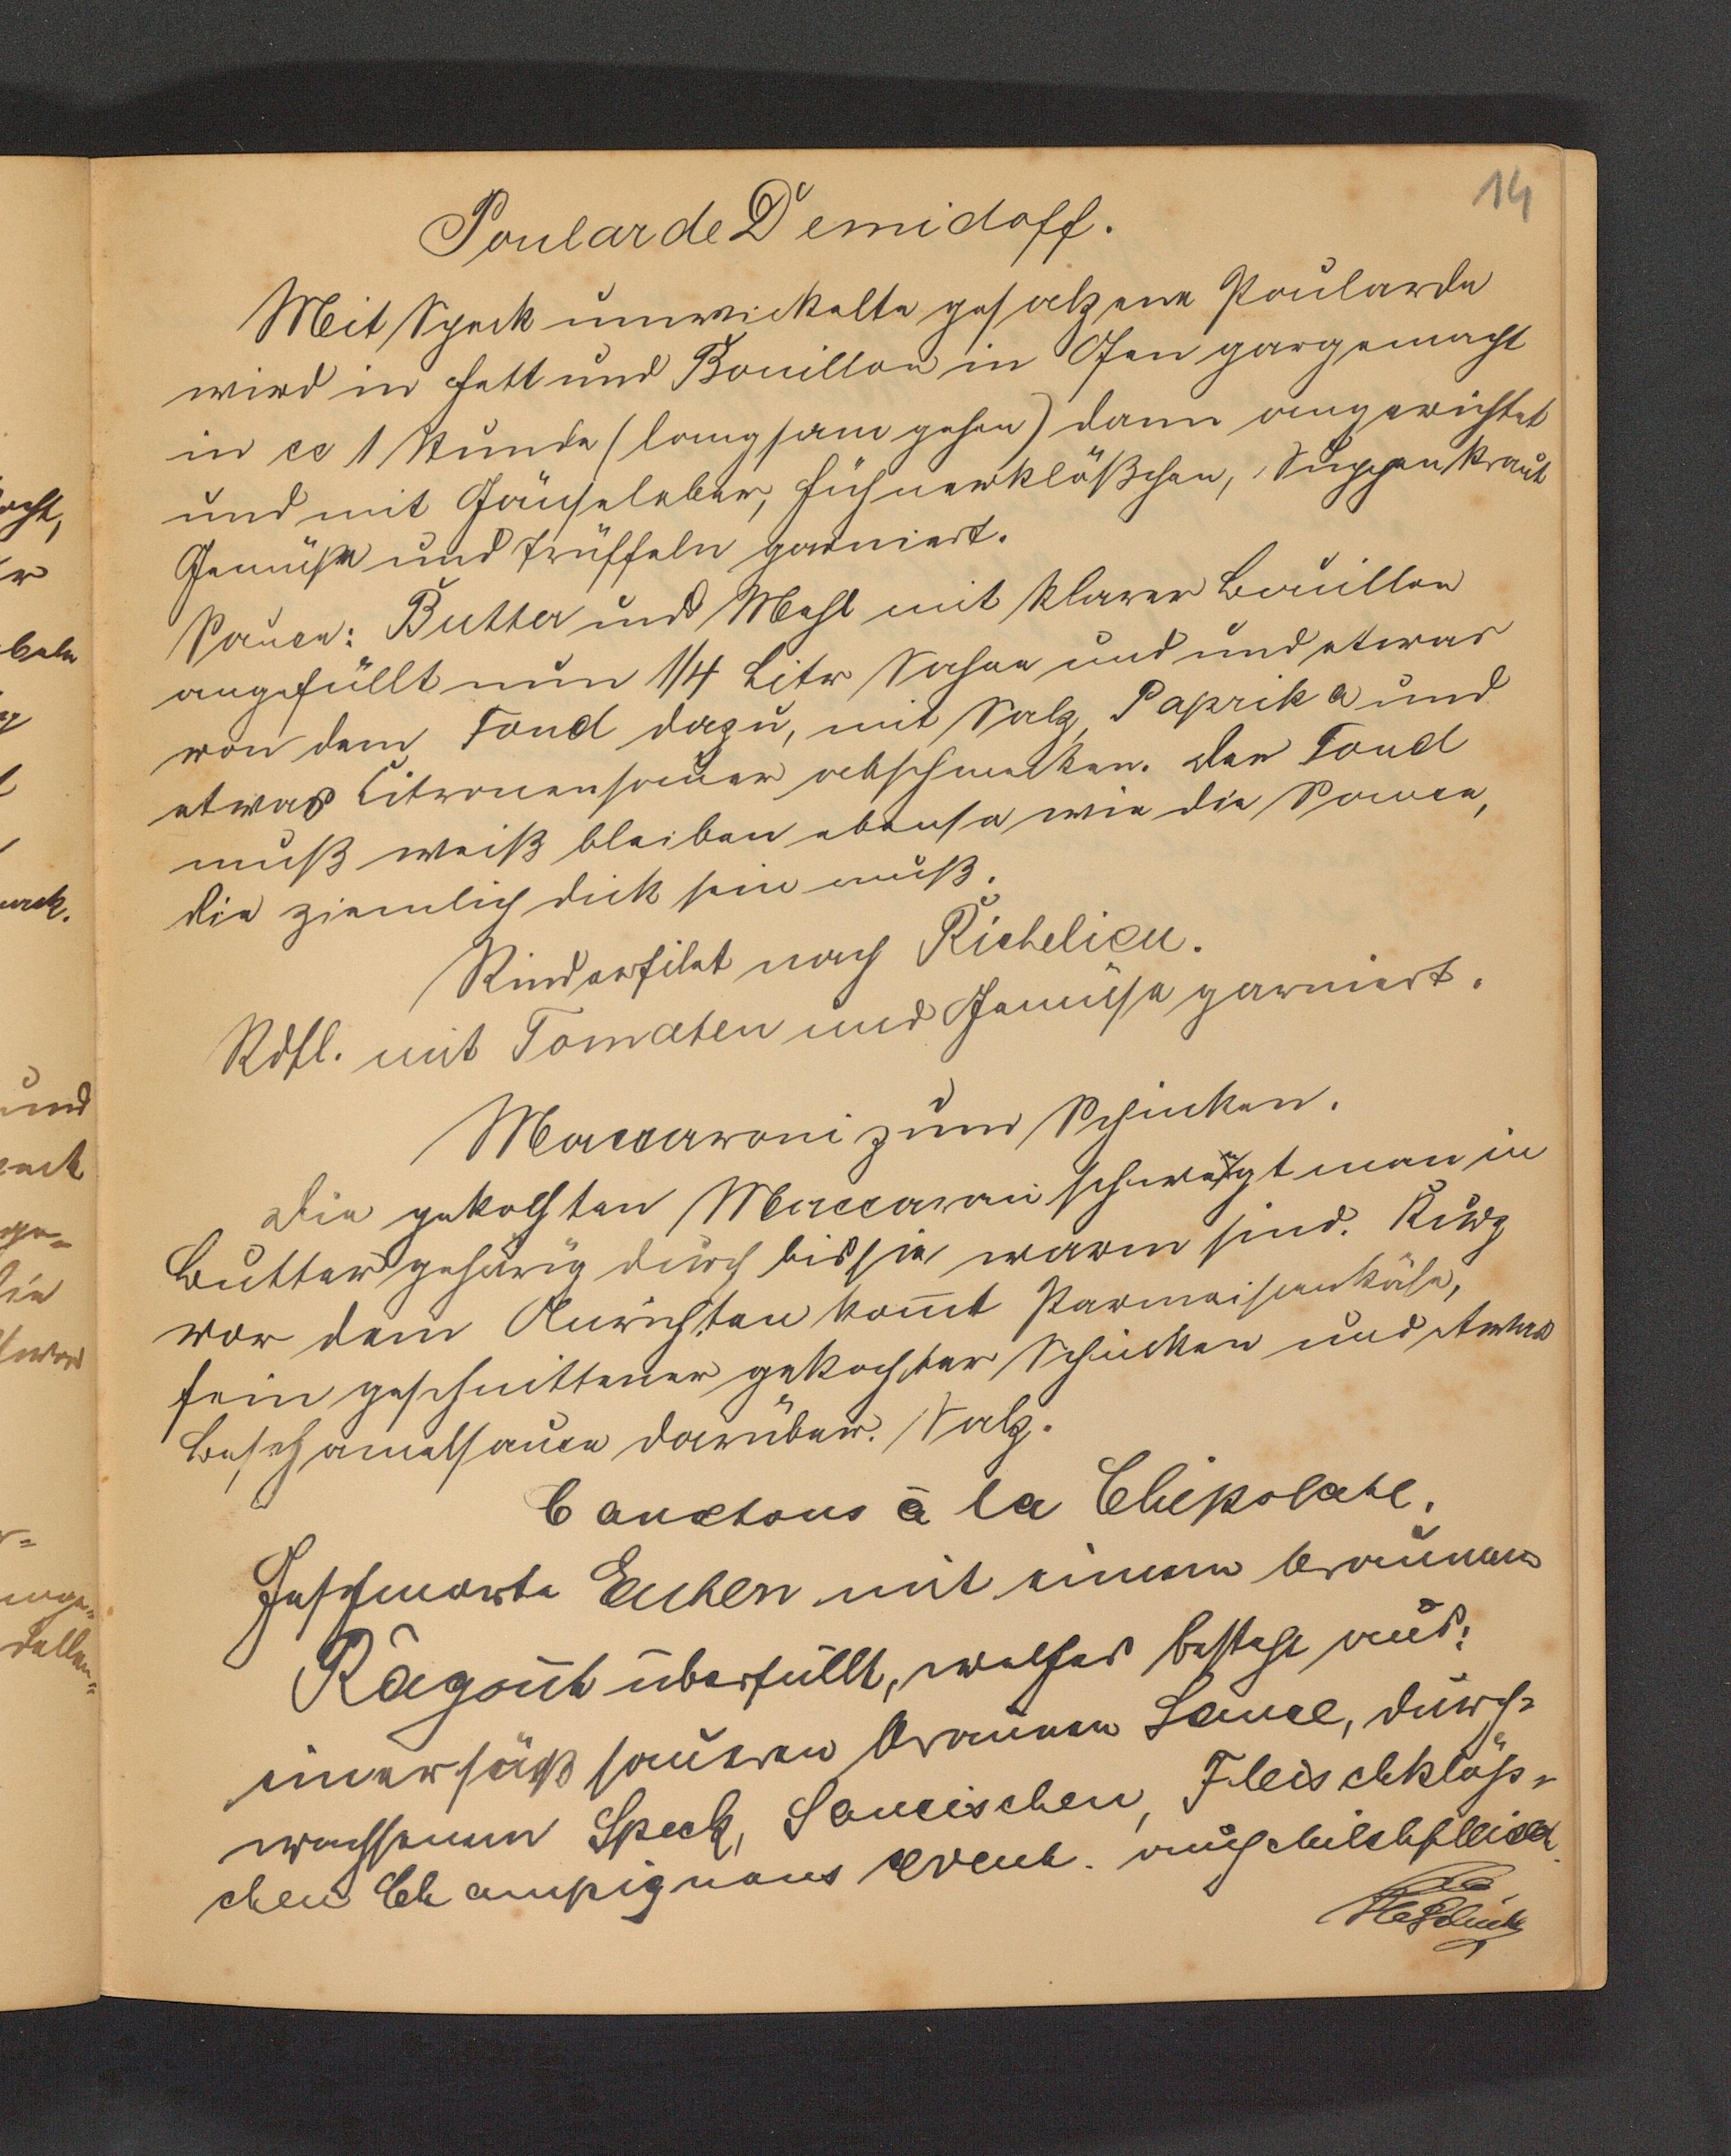 14
Poularde D'emidoff.
Mit Speck umwickelte gesalzene Poularde
wird in Fett und Bouillon in Ofen gargemacht
in cc 1 Stunde (langsam gehen) dann angerichtet
und mit Gänseleber, Hühnerklößchen, Suppenkraut
Gemüse und Trüffeln garniert.
Sauce: Butter und Mehl mit klarer Bouillon
angefüllt nun 1/4 Litr Sahne und und etwas
von dem Fond dazu, mit Salz, Paprika und
etwas Citronensauer abschmecken. Der Fond
muß weiß bleiben ebenso wie die Sauce,
die ziemlich dick sein muß.
Rinderfilet nach Richelieu.
Rdfl. mit Tomaten und Gemüse garniert.
Maccaroni zum Schinken.
Die gekochten Maccaroni schwengt man in
Butter gehörig durch bis sie warm sind. Kurz
vor dem Anrichten kommt Parmaisenkäse,
fein geschnittener gekochter Schinken und etwas
Beschamelsauce darüber. Salz.
Canetons à la Chipolate.
Geschmorte Enten mit einem braunen
Ragout überfüllt, welches besteht aus:
einer süß saueren braunen Sauce, durch-
wachsenem Speck, Saucischen, Fleischklöß-
chen Champignons event. auch Milchfleisch.